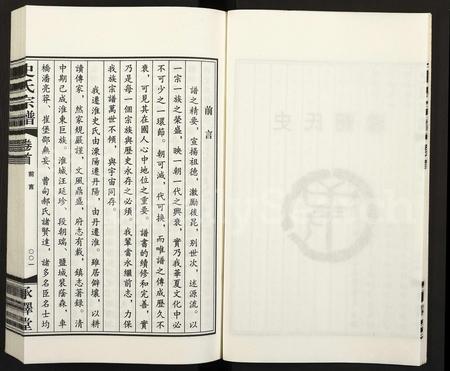 前言
譜之精要，宣揚祖德，激勵後昆，別世次，述源流。以
一宗一族之榮盛，映一朝一代之興衰，實乃我華夏文化中必
不可少之一環節。朝可減，代可換，而唯譜之傳成歷久不
衰，可見其在國人心中地位之重要。譜書的續修和完善，實
乃是每一個宗族與歷史永存之必須。我輩當永繼前志，力保
我族宗譜萬世不頹，與宇宙同存。
我遷淮史氏由溧陽遷丹陽，由丹遷淮。雖居僻壤，以耕
讀傳家，然家規嚴謹，文風鼎盛，府志有載，鎮志著録。清
中期已成淮東巨族。淮城汪延珍、段朝瑞、鹽城裴蔭森，車
橋潘亮彝、崔堡鄧燕妥、曹甸郝氏諸賢達，諸多名臣名士均
史氏宗譜
卷首
前言
〇〇一
承澤堂
史氏